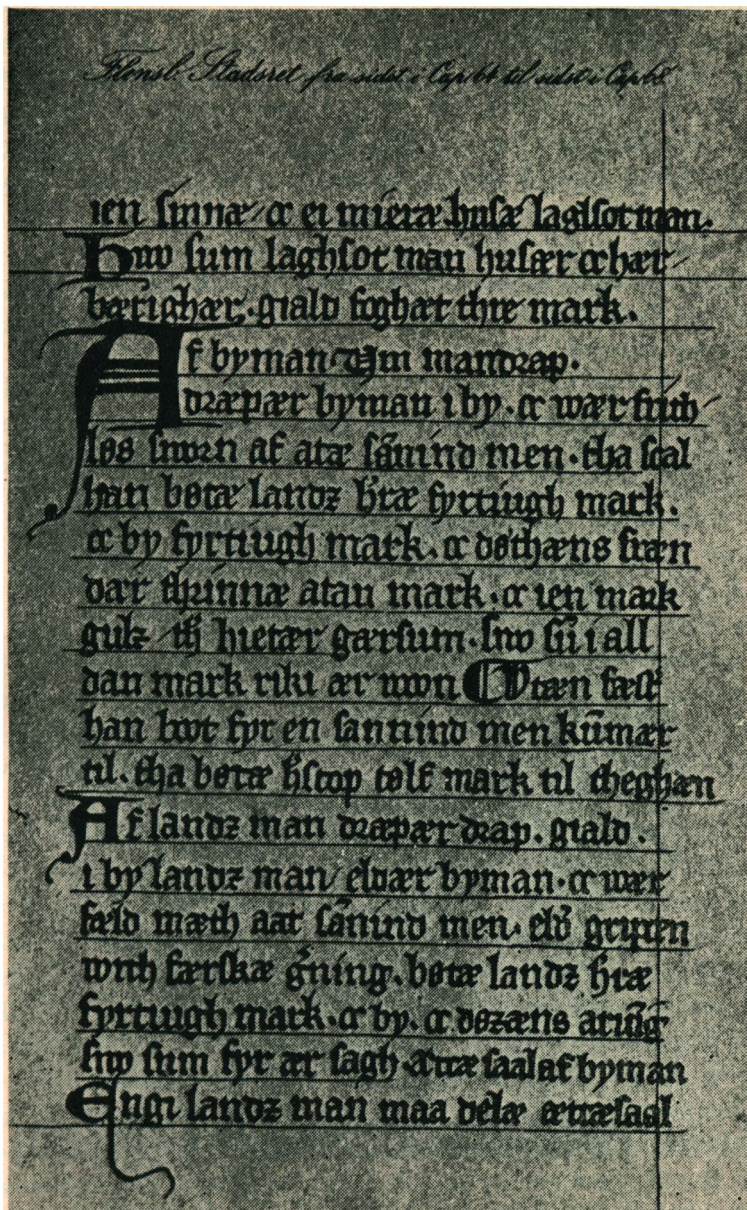 Flensb. Stadsret fra sidst i Cap 64 til sidst i Cap 68
ien sinnæ / oc ei mieræ husæ laghsot man.
Hwo sum laghsot man husær oc hær
bærighær. giald foghæt thre mark.
Af byman. Um mandrap.
dræpær byman i by. oc wær frith
løs sworn af atæ sānind men. tha scal
han bøtæ landz h̄ræ fyrtiugh mark.
oc by fyrtiugh mark. oc døthæns fræn
dær thrinnæ atan mark. oc ien mark
gulz th̄ hietær gørsum. swo sū i all
dan mark riki ær won Utæn fæst
han bot fyr en sannind men kūmær
til. tha bøtæ h̄scop tolf mark til theghæn
Af landz man dræpær drap. giald.
i by landz man / eldær byman. oc wær
fæld mæth aat sānind men. eld̄ gripen
with færskæ ḡning. bøtæ landz h̄ræ
fyrtiugh mark. oc by. oc døzæns
swo sum fyr ær sagh. ættæ saal af byman
Engi landz man maa delæ ættæsagl